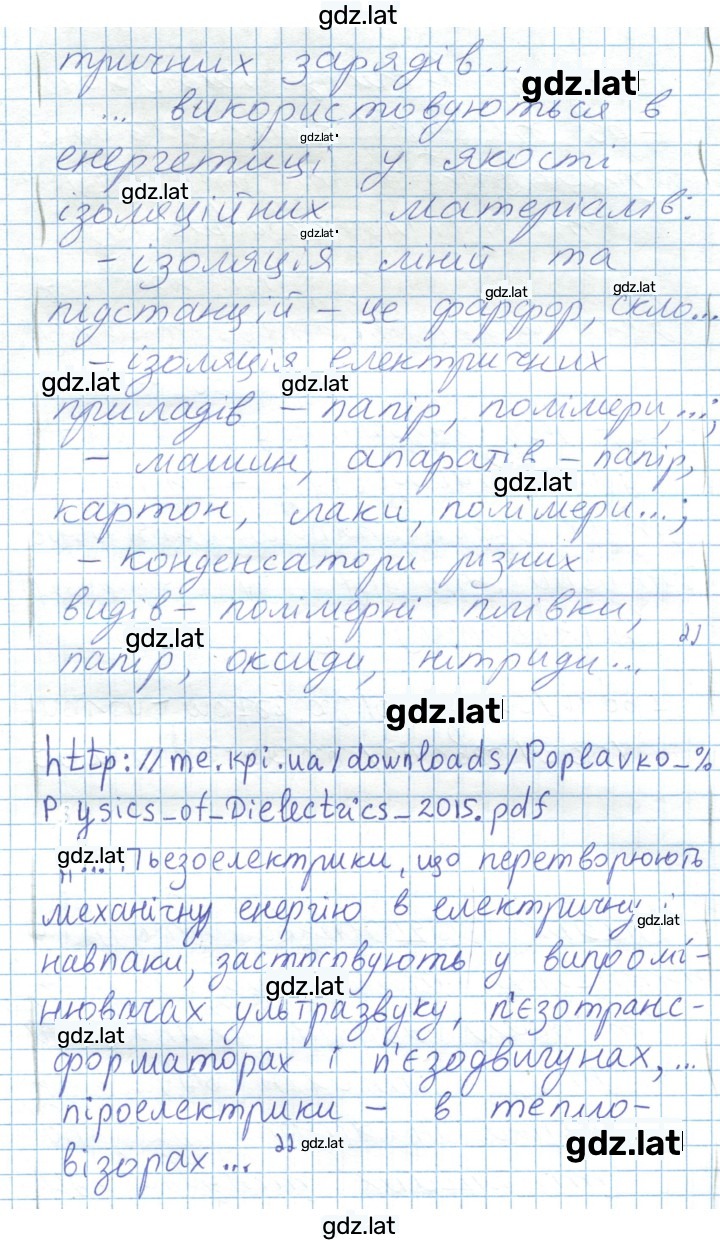 gdz.lat
тричних зарядів...
gdz.lat
... використовуються в
gdz.lat
енергетиці у якості
gdz.lat
ізоляційних матеріалів:
gdz.lat
- ізоляція ліній та
gdz.lat gdz.lat
підстанцій – це фарфор, скло...
- ізоляція електричних
gdz.lat gdz.lat
приладів – папір, полімери,...;
- машин, апаратів – папір,
gdz.lat
картон, лаки, полімери...;
- конденсатори різних
видів – полімерні плівки,
gdz.lat
папір, оксиди, нітриди..."
gdz.lat
http://me.kpi.ua/downloads/Poplavko_%
P ysics_of_Dielectrics_2015.pdf
gdz.lat
"... П'езоелектрики, що перетворюють
механічну енергію в електричну і
gdz.lat
навпаки, застосовують у випромі-
gdz.lat
нювачах ультразвуку, п'єзотранс-
gdz.lat
форматорах і п'єзодвигунах,...
піроелектрики – в тепло-
візорах..."
gdz.lat
gdz.lat
gdz.lat